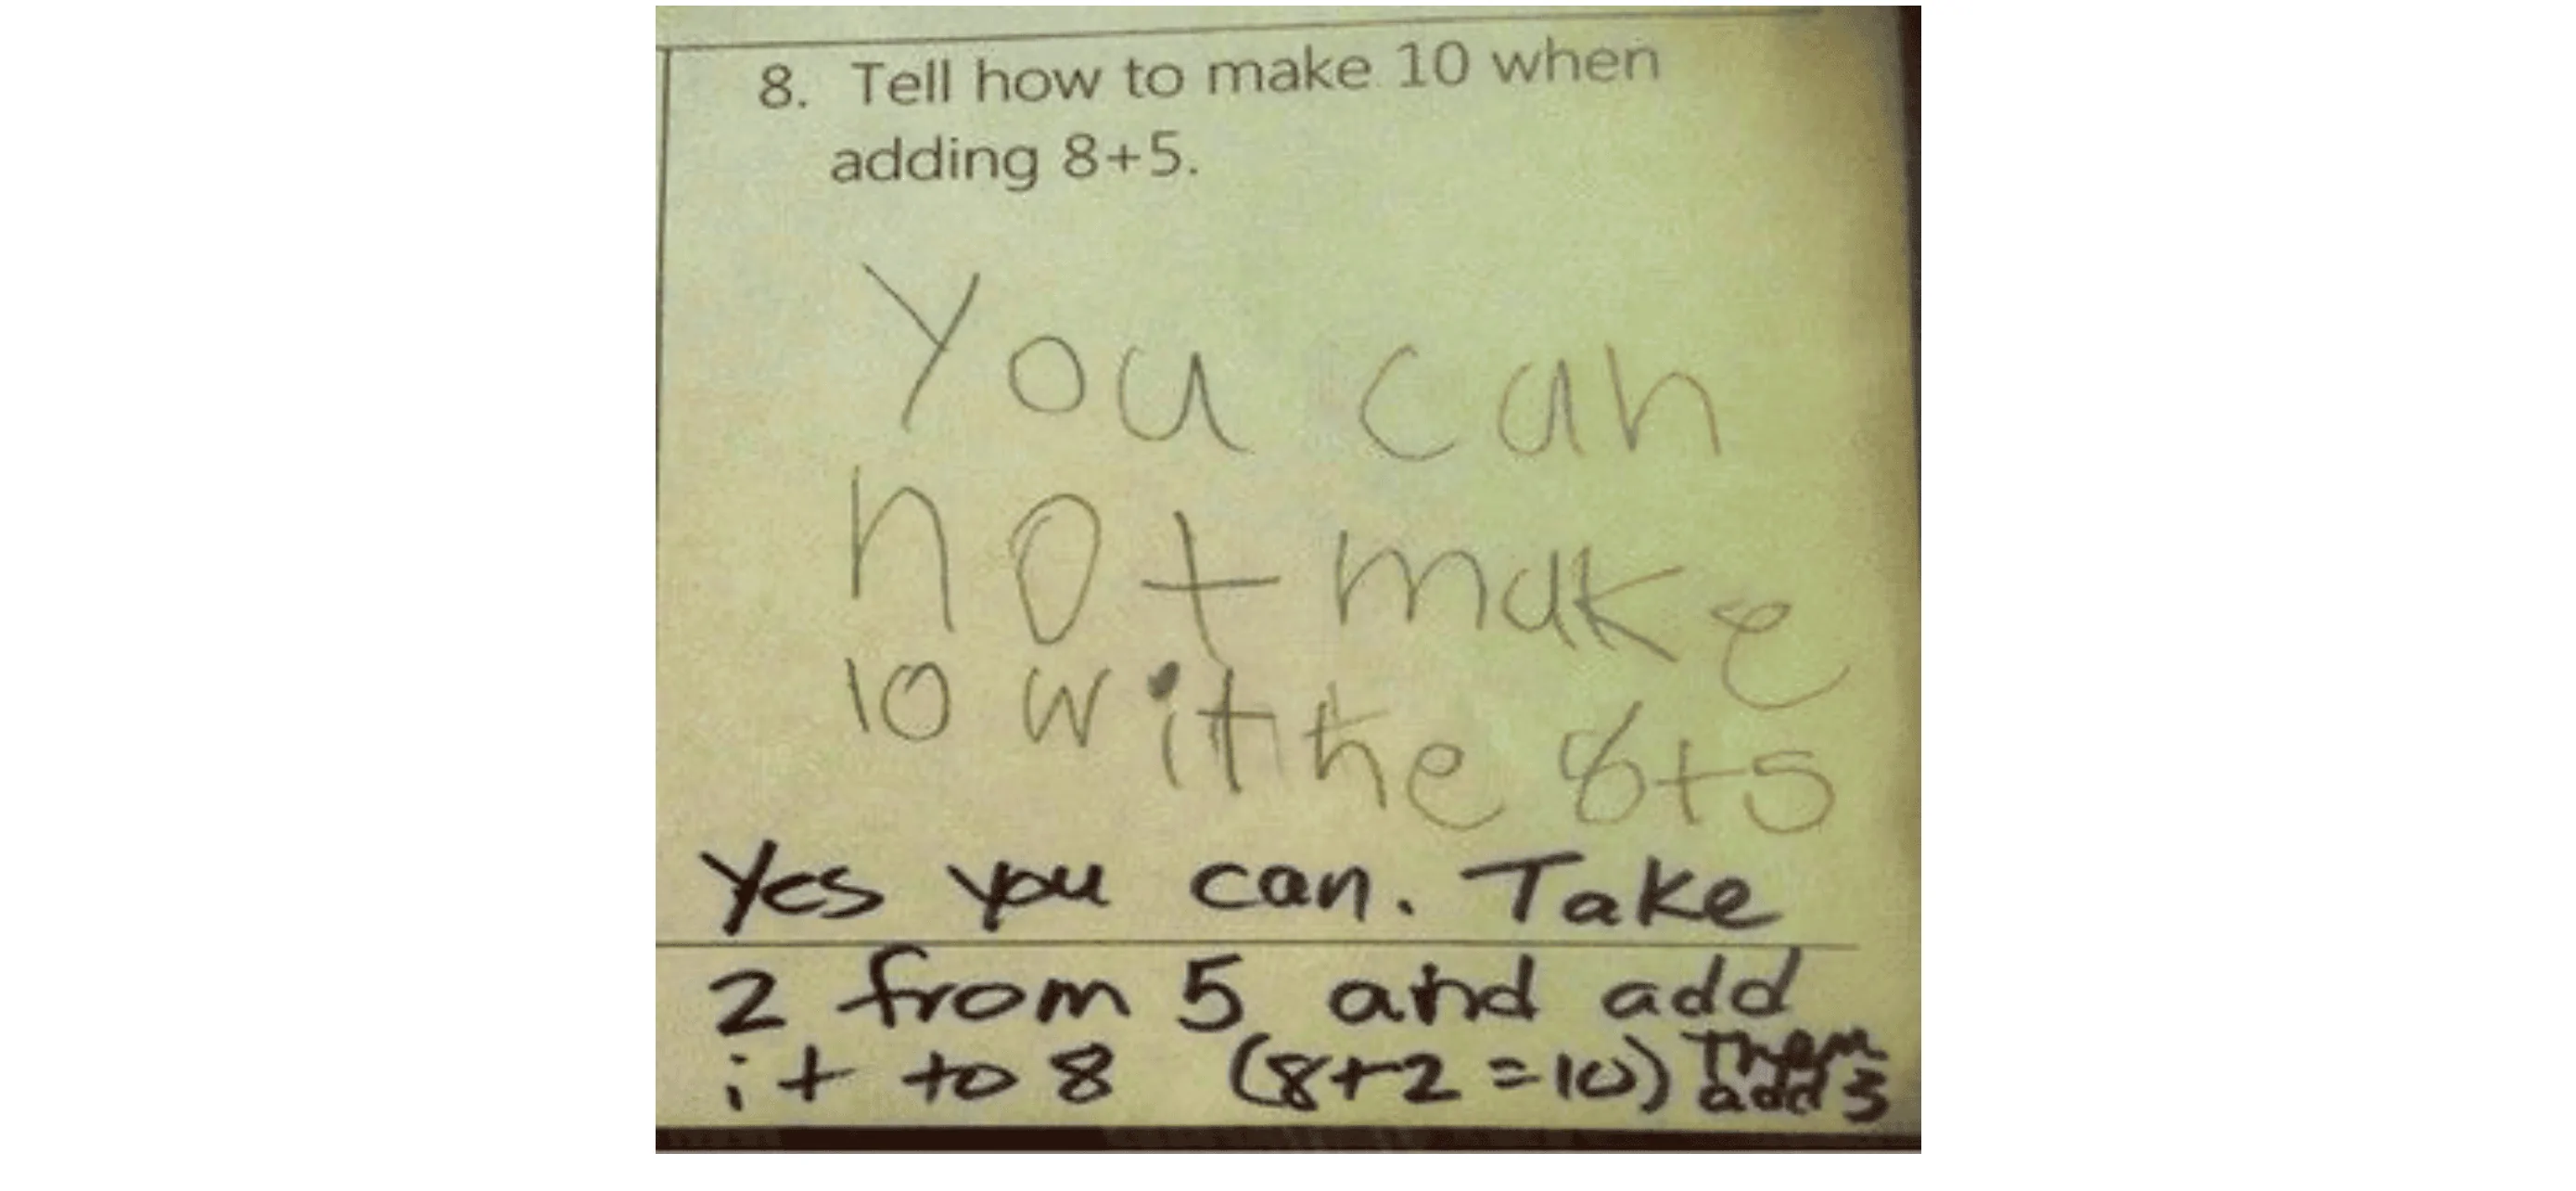 8. Tell how to make 10 when
adding 8+5.
You can
not make
10 withe 8+5
Yes you can. Take
2 from 5 and add
it to 8 (8+2=10) Then
add 3